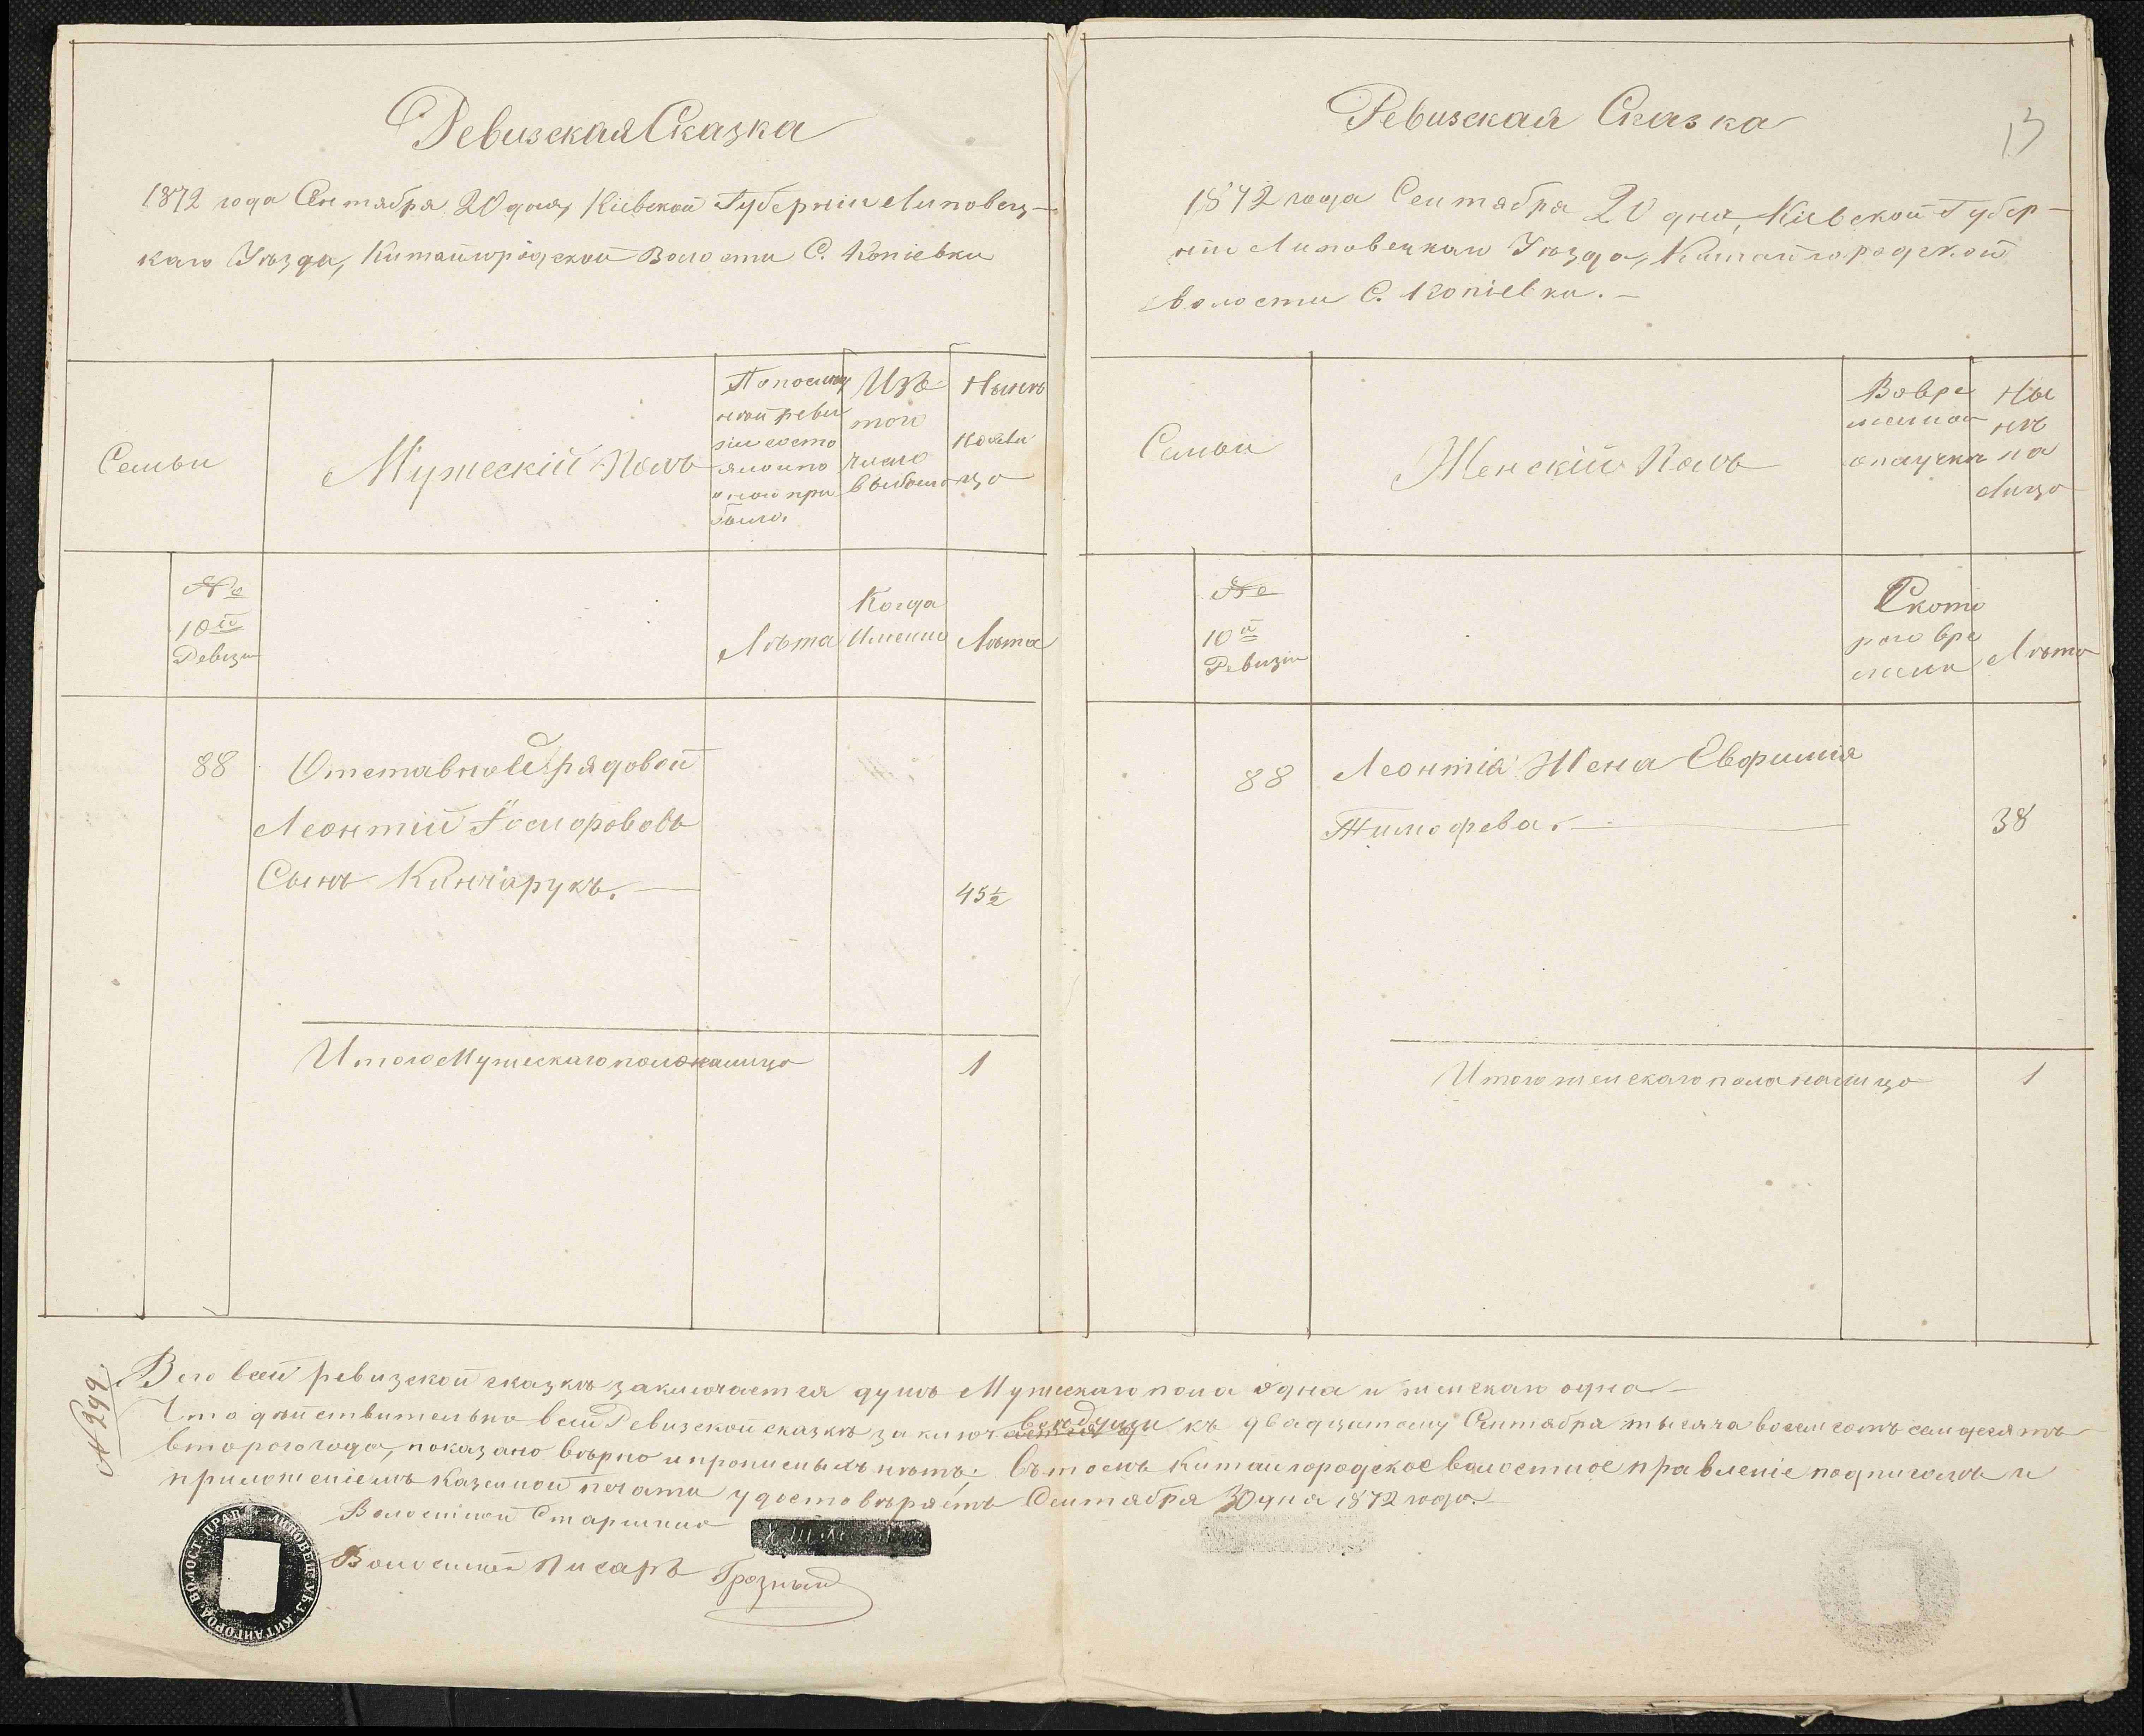 Ревизская Сказка
1872 года Сентября 20 дня, Кіевской Губерніи Липовец-
каго Уѣзда, Китайгородской Волости С. Копіевки
Семьи
Мужескій Полъ
По послѣд
ней реви
зіи состо
яло и по
оной при
было.
Изъ
того
числа
выбыло
Нынѣ
на ли
цо
№
10й
Ревизіи
Лѣта
Когда
Именно
Лѣта
88
Отставной рядовой
Леонтій
Сынъ Кинчарукъ.
45 1/2
Итого Мужескаго пола налицо
1
Ревизская Сказка
13
1872 года Сентября 20 дня, Кіевской Губер-
ніи Липовецкаго Уѣзда, Китайгородской
волости С. Копіевки.-
Семьи
Женскій Полъ
Во вре
менной
отлучки
Ны
нѣ
на
Лицо
№
10й
Ревизіи
С кото
раго вре
мени
Лѣта
88
Леонтія Жена Евфимія
Тимофева.
38
Итого женскаго пола налицо
1
№ 299.
Всего в сей ревизской сказкѣ заключается душъ Мужескаго пола одна и женскаго одна
Что дѣйствительно в сей Ревизской сказкѣ заключ къ двадцатому Сентября тысяча восемсотъ семдесятъ
второго года, показано вѣрно и прописныхъ нѣтъ; въ томъ Китайгородское волостное правленіе подписомъ и
приложеніемъ казенной печати удостовѣряетъ Сентября 30 дня 1872 года.
Волостной Старшина
Волостной Писарь Грозный
ЛИПОВЕЦ. УѢЗ. КИТАЙГОРОД. ВОЛОСТ. ПРАВ.